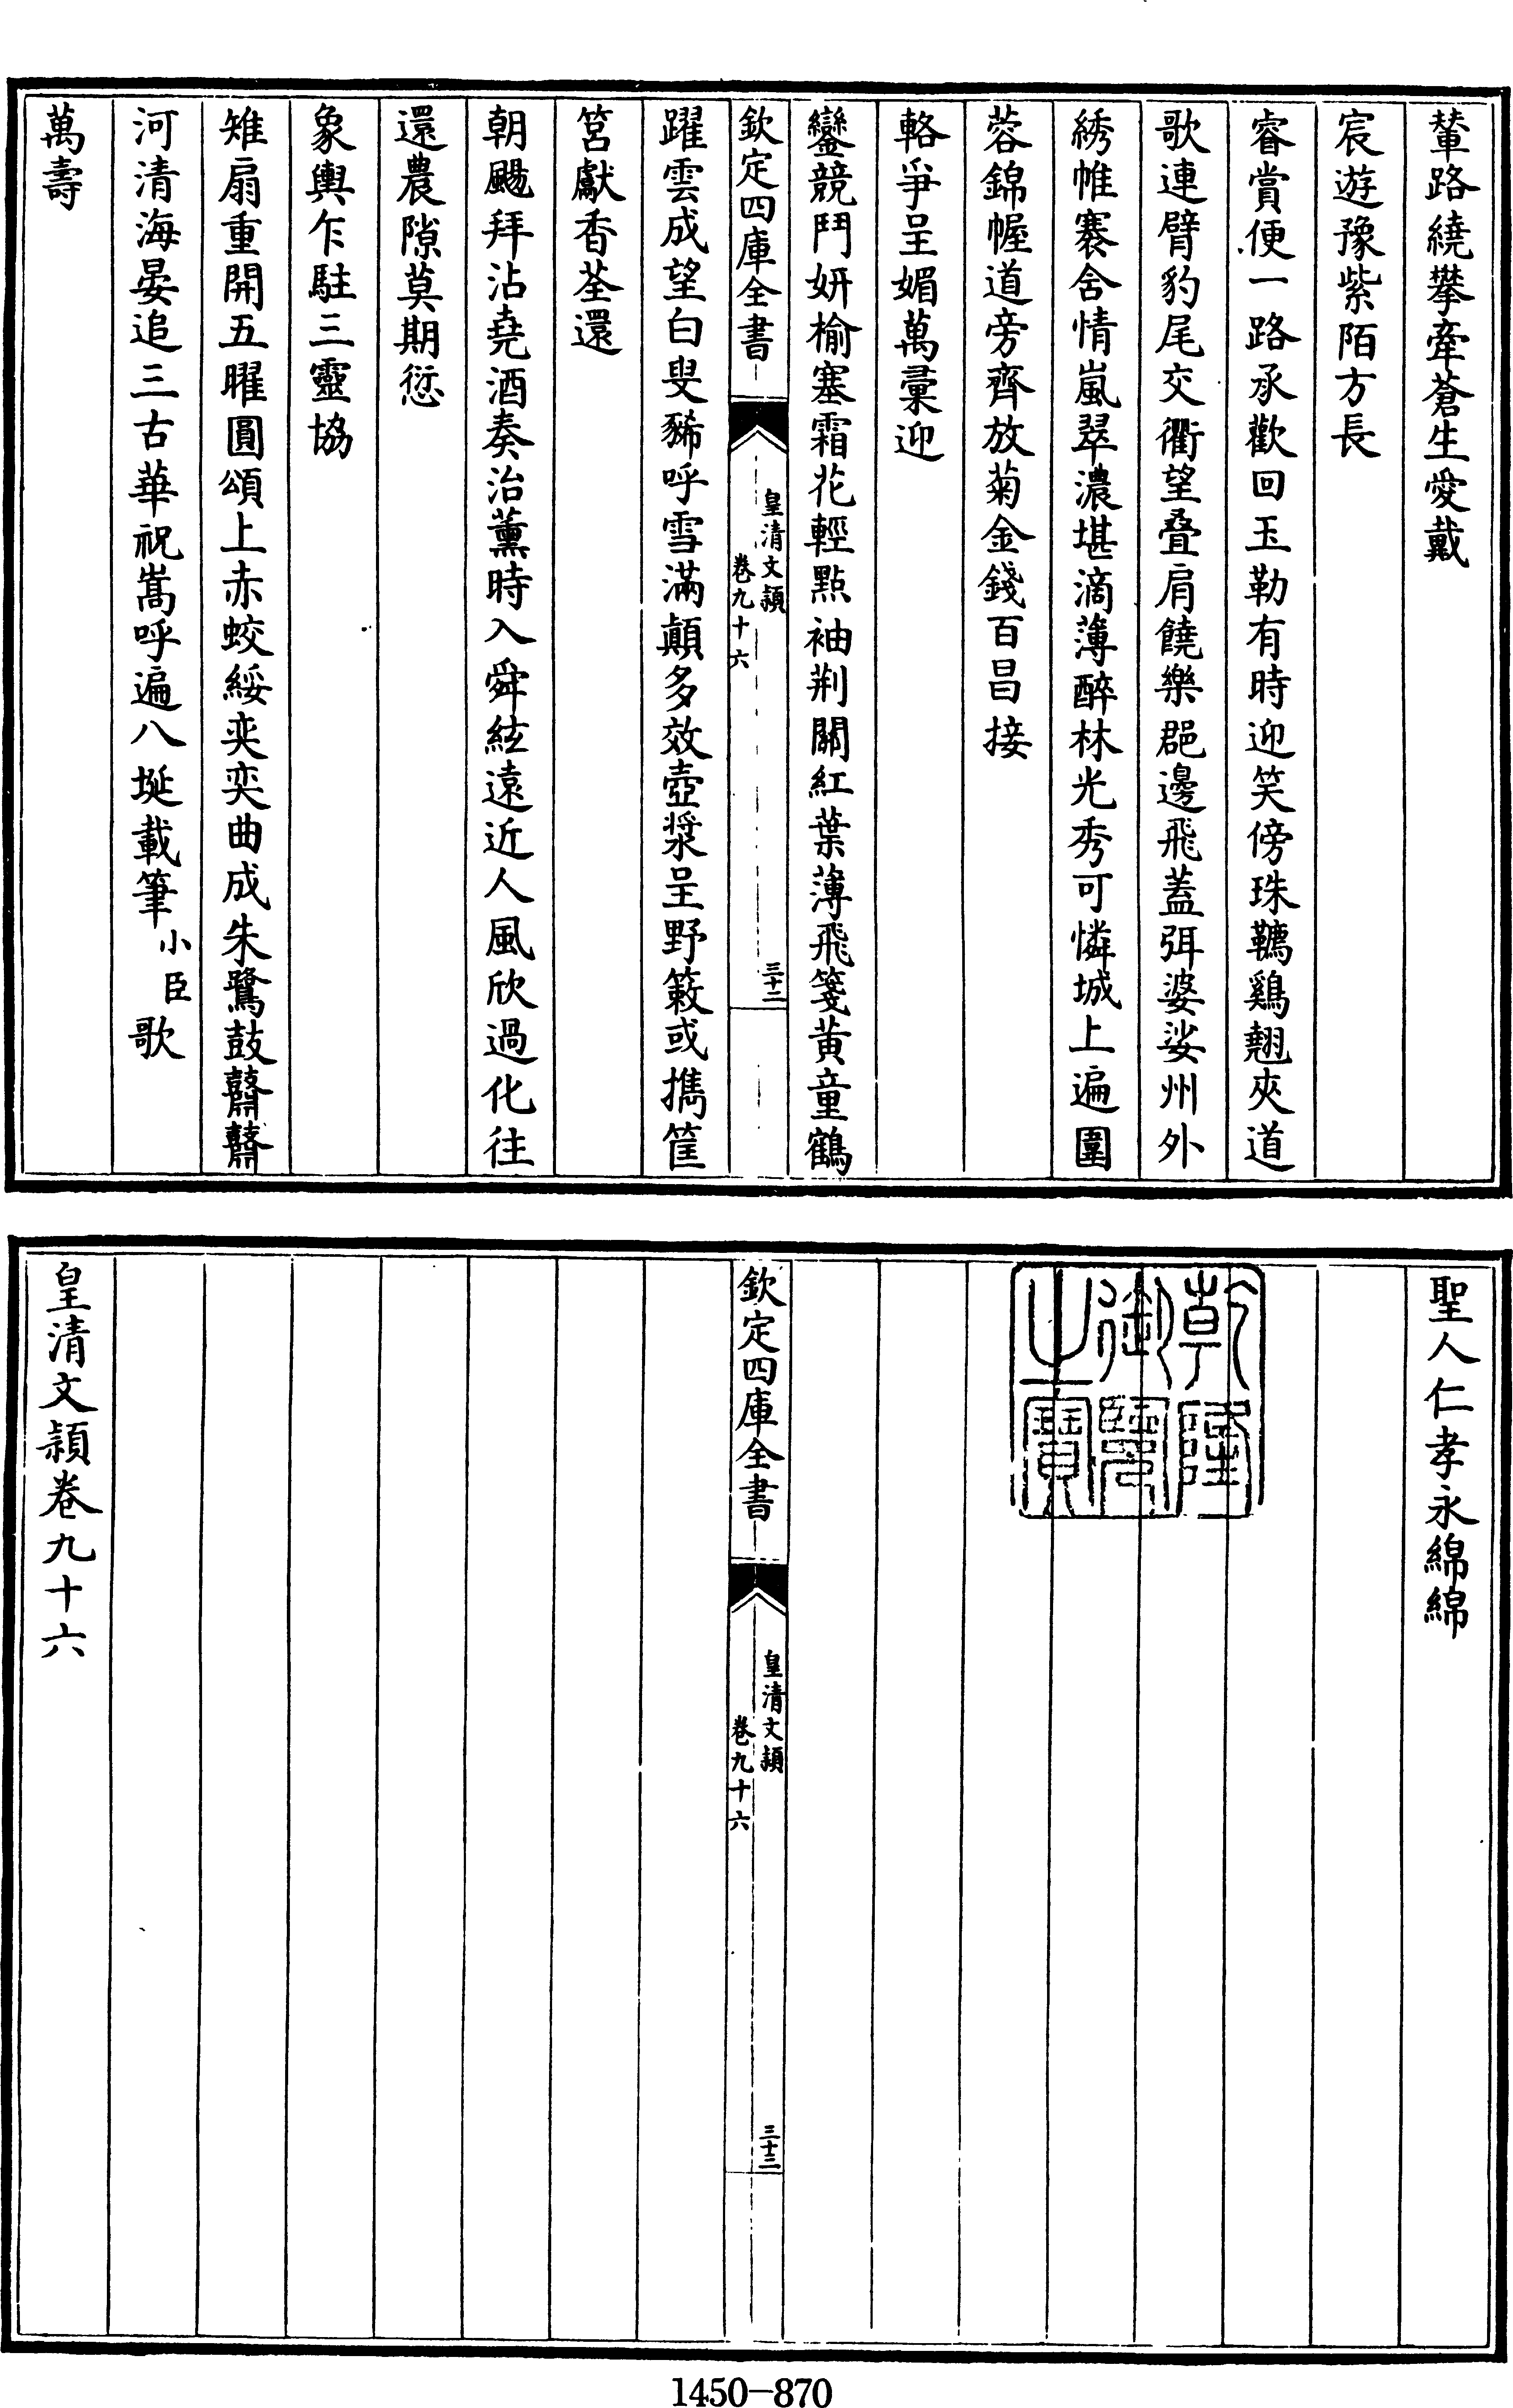 輦路繞攀牽蒼生愛戴
宸遊豫紫陌方長
睿賞便一路承歡回玉勒有時迎笑傍珠韉鷄翹夾道
歌連臂豹尾交衢望疊肩饒樂郡邊飛蓋弭婆娑州外
綉帷褰含情嵐翠濃堪滴薄醉林光秀可憐城上遍圍
蓉錦幄道旁齊放菊金錢百昌接
輅爭呈媚萬彙迎
鑾競鬥妍榆塞霜花輕點袖荆關紅葉薄飛箋黃童鶴
欽定四庫全書
皇清文穎
卷九十六
三十二
躍雲成望白叟豨呼雪滿顛多效壺漿呈野簌或擕筐
筥獻香荃還
朝颺拜沾堯酒奏治薰時入舜絃遠近人風欣過化往
還農隙莫期愆
象輿乍駐三靈協
雉扇重開五曜圓頌上赤蛟綏奕奕曲成朱鷺鼓鼘鼘
河清海晏追三古華祝嵩呼遍八埏載筆小臣歌
萬壽
聖人仁孝永綿綿
乾隆御覽之寶
欽定四庫全書
皇清文穎
卷九十六
三十三
皇清文穎卷九十六
1450-870